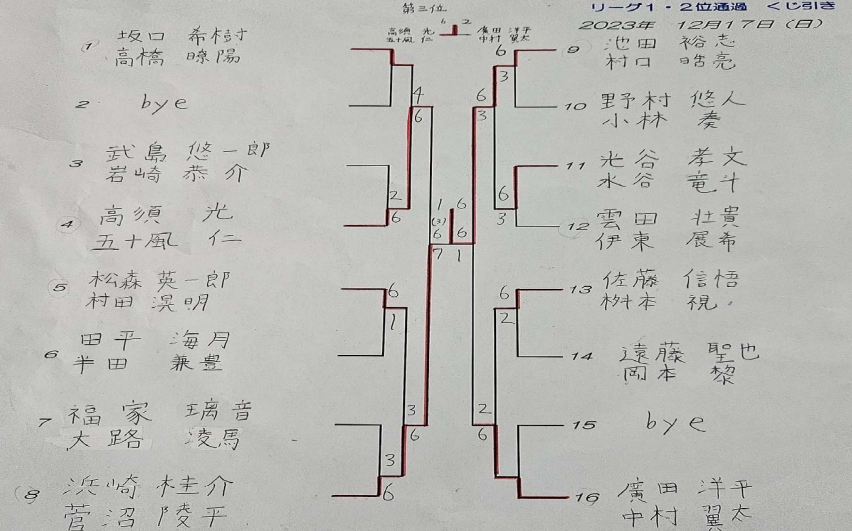 リーグ1・2位通過 くじ引き
2023年 12月17日(日)
第三位
6 2
高須 光
五十嵐 仁
廣田 洋平
中村 翼太
1
坂口 希樹
高橋 暸陽
2
bye
3
武島 悠一郎
岩崎 恭介
4
高須 光
五十嵐 仁
5
松森 英一郎
村田 滉明
6
田平 海月
半田 兼豊
7
福家 璃音
大路 凌馬
8
浜崎 桂介
菅沼 陵平
4
6
2
6
6
1
3
6
3
6
1 6
(3)
6 6
7 1
6
3
6
3
6
3
6
2
2
6
9
池田 裕志
村口 皓亮
10
野村 悠人
小林 奏
11
光谷 孝文
水谷 竜斗
12
雲田 壮貴
伊東 展希
13
佐藤 信悟
桝本 視
14
遠藤 聖也
岡本 黎
15
bye
16
廣田 洋平
中村 翼太